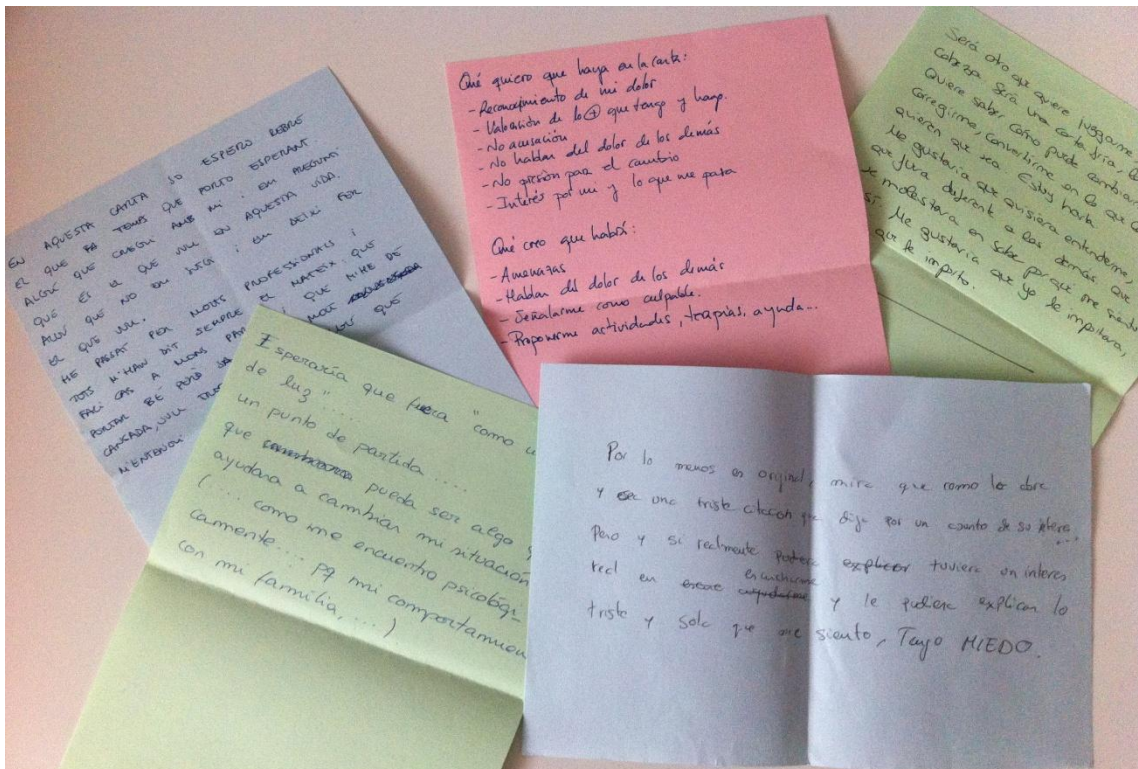 EN AQUESTA CARTA JO ESPERO REBRE
EL QUE FA TEMPS QUE PORTO ESPERANT
ALGÚ QUE CREGUI AMB MI I EM PREGUNTI
QUÈ ÉS EL QUE VULL EN AQUESTA VIDA.
ALGÚ QUE NO EM JUTGI I EM DEIXI FER
EL QUE VULL.
HE PASSAT PER MOLTS PROFESSIONALS I
TOTS M'HAN DIT SEMPRE EL MATEIX: QUE
FACI CAS A LLONS I QUE M'HE DE
PORTAR BÉ PERÒ JA MOLT
CANSADA, VULL QUE
M'ENTENGUI
Qué quiero que haya en la carta:
- Reconocimiento de mi dolor
- Valoración de lo + que tengo y hago.
- No acusación
- No hablan del dolor de los demás
- No presión para el cambio
- Interés por mi y lo que me pasa
Qué creo que habrá:
- Amenazas
- Hablan del dolor de los demás
- Señalarme como culpable.
- Proponerme actividades, terapias, ayuda...
Será otro que quiere juzgarme
cabeza. Será una carta fría,
Quiere saber cómo puede cambiar
corregirme, convertirme en lo que
quieren que sea. Estoy harta
Me gustaría que quisiera entenderme,
que fura diferent a las demás que
se molestara en saber porqué me siento
así. Me gustaría que yo le importara,
que le importo.
Esperaría que fuera "como u
de luz"....
un punto de partida....
que pueda ser algo q
ayudara a cambiar mi situación
(.... como me encuentro psicológi-
camente.... pq mi comportamien
con mi familia, ....)
Por lo menos es original, mira que como lo dice
y una triste citacion que dije por un cuanto de su interes...
Pero y si realmente tuviera un interes
real en escucharme y le pudiera explicar lo
triste y sola que me siento, Tengo MIEDO.